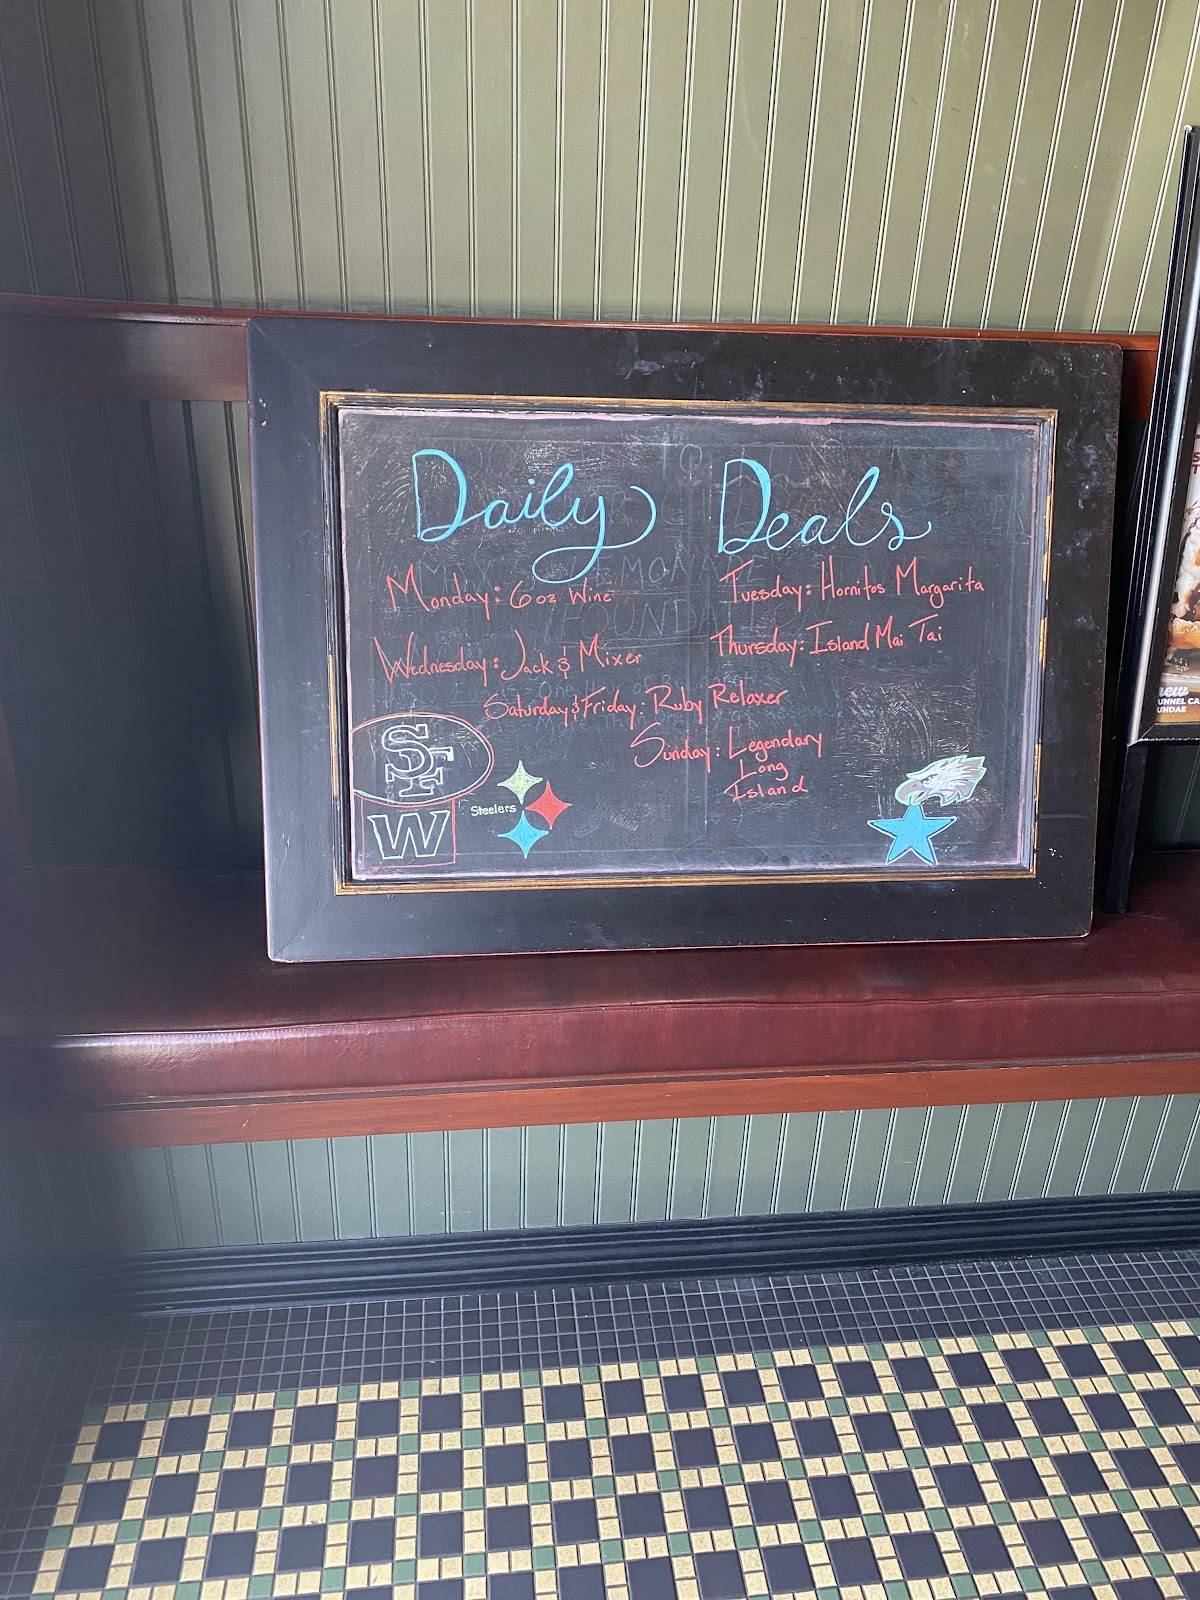 Daily Deals
Monday: 6 oz Wine
Tuesday: Hornitos Margarita
Wednesday: Jack & Mixer
Thursday: Island Mai Tai
Saturday & Friday: Ruby Relaxer
Sunday: Legendary
Long
Island
SF
W
Steelers
MONADE
new
UNNEL CA
UNDAE